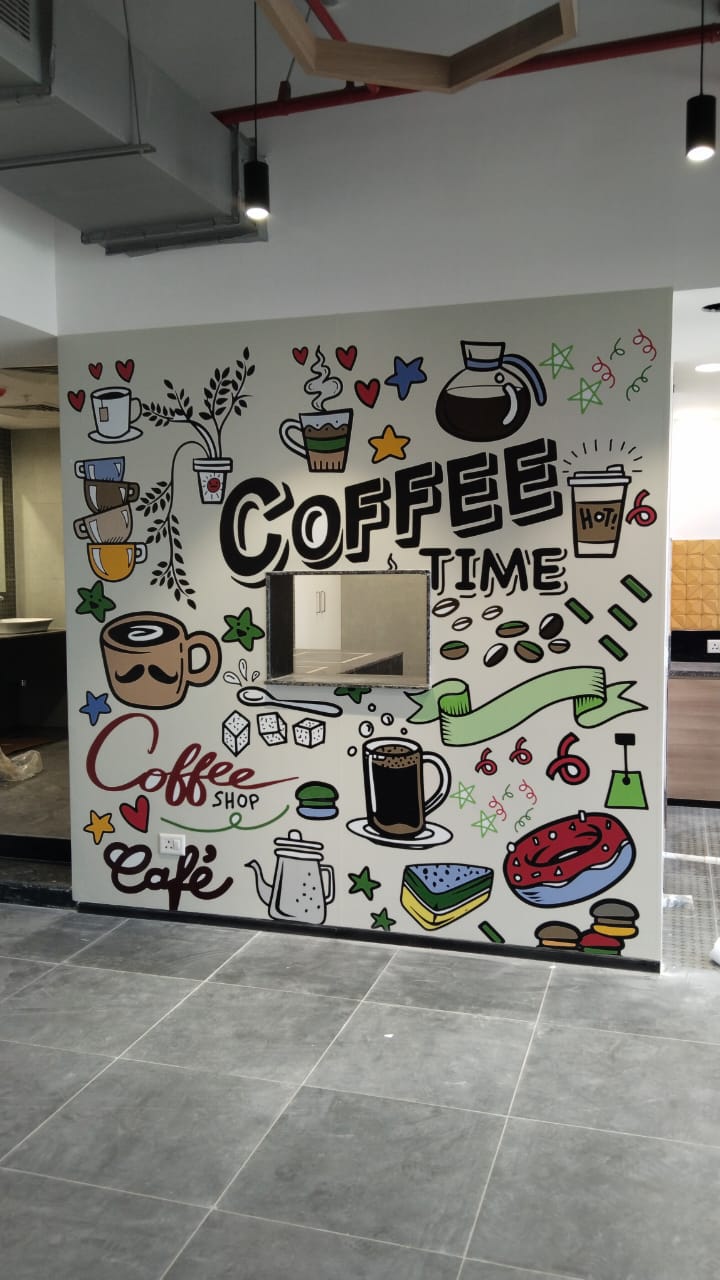 COFFEE
TIME
HOT!
Coffee
SHOP
Café